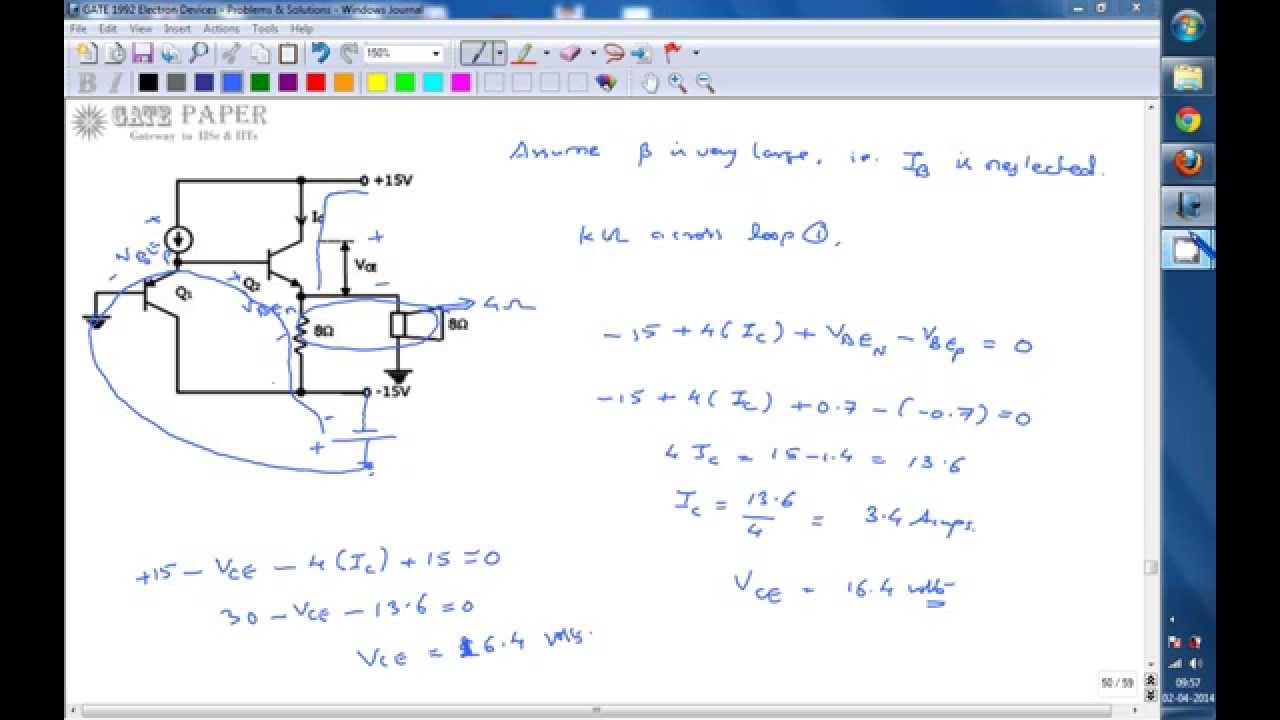 GATE 1992 Electron Devices - Problems & Solutions - Windows Journal
File Edit View Insert Actions Tools Help
150%
B I
GATE PAPER
Gateway to IISc & IITs
Assume β is very large, i.e. I_B is neglected.
+15V
I_C
KVL across loop ①,
+
V_BEP
V_CE
-
-
+
Q1
Q2
V_BEN
4Ω
8Ω
8Ω
-
-15 + 4(I_C) + V_BEN - V_BEP = 0
-15V
-15 + 4(I_C) + 0.7 - (-0.7) = 0
-
+
4 I_C = 15 - 1.4 = 13.6
I_C = 13.6/4 = 3.4 Amps.
+15 - V_CE - 4(I_C) + 15 = 0
V_CE = 16.4 volts
30 - V_CE - 13.6 = 0
V_CE = 16.4 volts.
50 / 59
09:57
02-04-2014